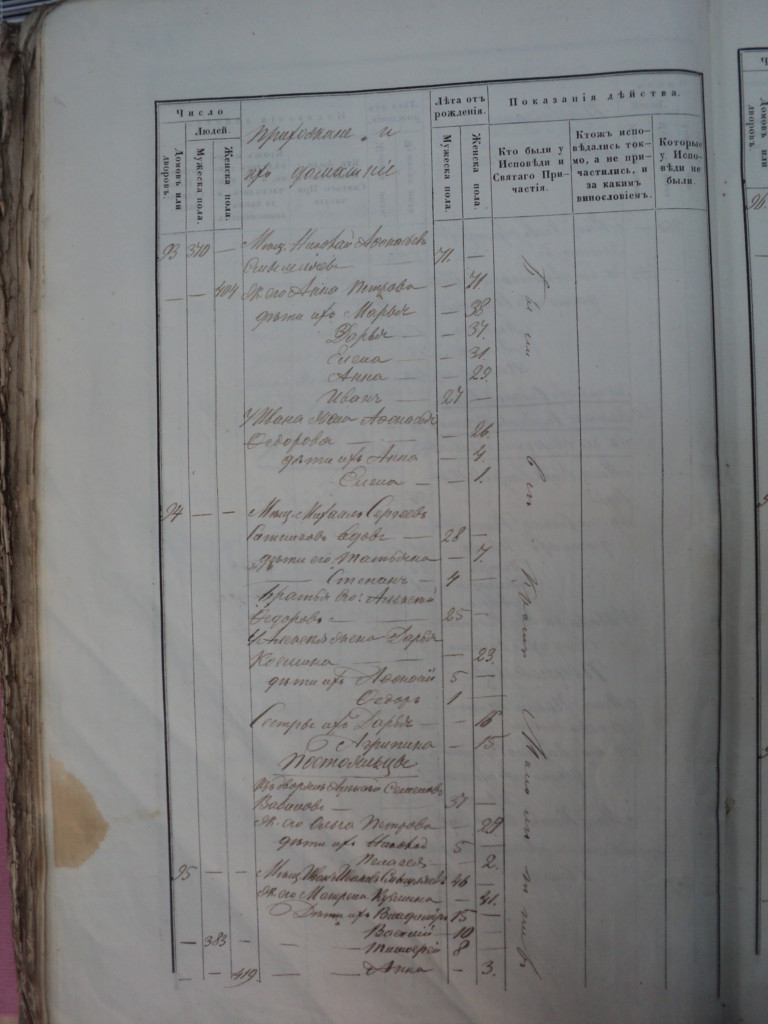 Число
Людей.
Домовъ или дворовъ.
Мужеска пола.
Женска пола.
Прихожане и
ихъ домашніе
Лѣта отъ рожденія.
Мужеска пола.
Женска пола.
Показанія дѣйства.
Кто были у Исповѣди и Святаго Причастія.
Ктожъ исповѣдались токмо, а не причастились, и за какимъ винословіемъ.
Которые у Исповѣди не были.
93 370 — Мѣщ. Николай 71. —
— — 404 Ж. его Анна Петрова — 71.
дѣти ихъ Марья — 38
Дарья — 37.
Елена — 31.
Анна — 29.
Иванъ — 27 —
У Ивана жена
Ѳедорова — 26.
дѣти ихъ Анна — 4.
Елена — 1.
94 — — Мѣщ. Михаилъ Сергеевъ
вдовъ — 28 —
дѣти его Татьяна — 7.
Степанъ — 4 —
братья его: Алексѣй
Ѳедоровъ — 25 —
У Алексѣя жена Дарья
— 23.
дѣти ихъ 5 —
Ѳедоръ 1 —
Сестры ихъ Дарья — 16
Агрипина — 15.
Постояльцы
Алексѣй Семеновъ
37 —
Ж. его Ольга Петрова — 29
дѣти ихъ Николай 5 —
Пелагея — 2.
95 — — Мѣщ. Иванъ 46 —
Ж. его Матрена — 41.
Дѣти ихъ Владимиръ 15 —
— 383 Василій — 10 —
Тимоѳей 8 —
— — 419. Анна — 3.
96.